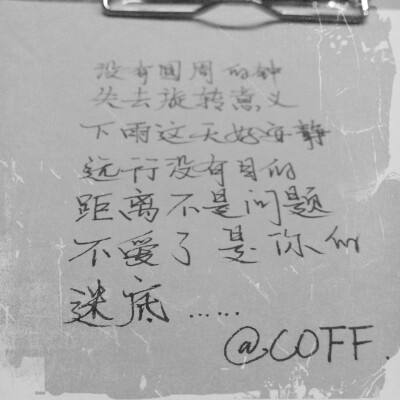 没有圆周的钟
失去旋转意义
下雨这天好安静
远行没有目的
距离不是问题
不爱了是你的
迷底……
@COFF.